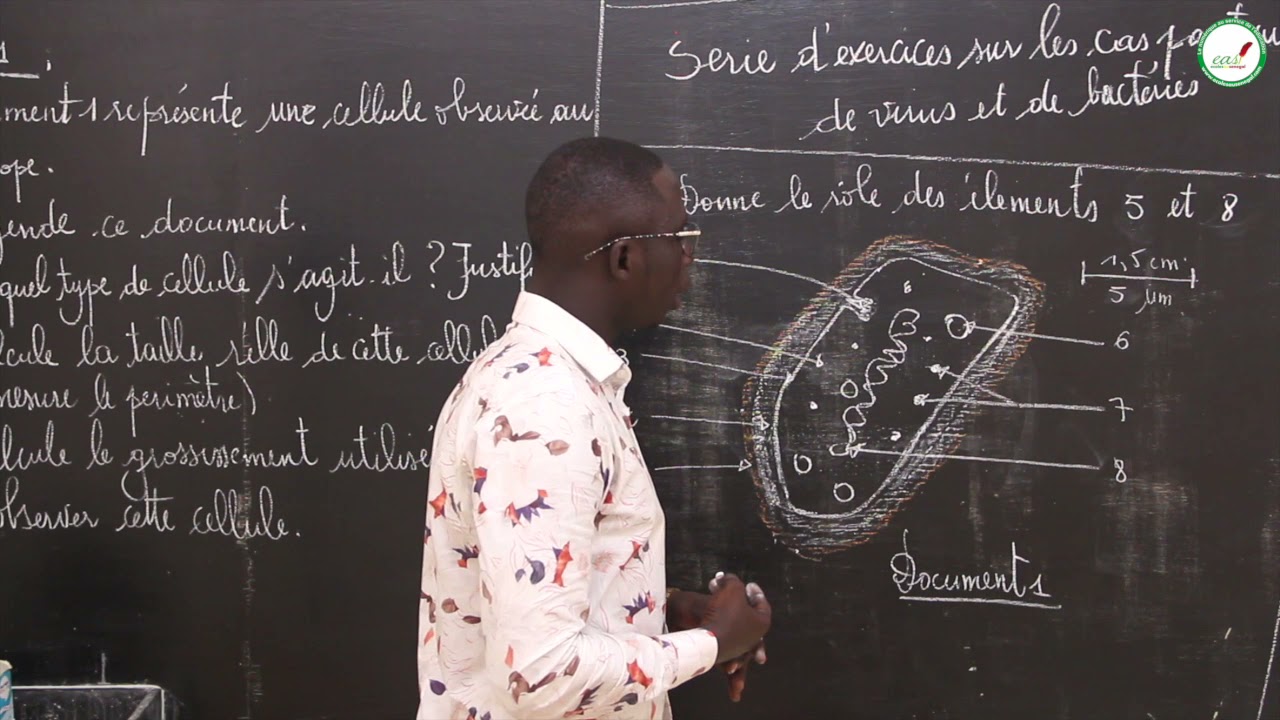 1.
ment 1 représente une cellule observée au
ope.
gende ce document.
quel type de cellule s'agit-il ? Justif
lcule la taille réelle de cette cellul
mesure le périmètre)
lcule le grossissement utilisé
observer cette cellule.
Serie d'exercices sur les cas
de virus et de bactéries
Donne le rôle des élements 5 et 8
1,5 cm
5 µm
3
6
7
8
Document 1
eas